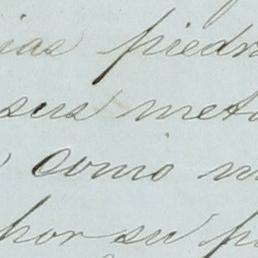 ias piedr
sus met
como m
por su p